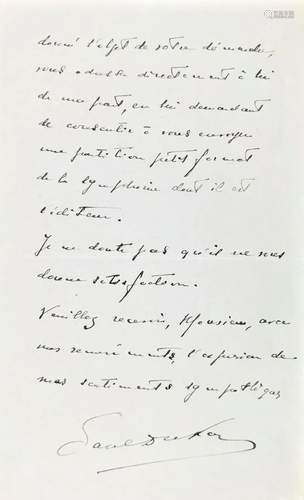 donné l'objet de votre demande,
vous adresser directement à lui
de ma part, en lui demandant
de consentir à vous envoyer
une partition petit format
de la symphonie dont il est
l'éditeur.
Je ne doute pas qu'il ne vous
donne satisfaction.
Veuillez recevoir, Monsieur, avec
mes remerciements, l'expression de
mes sentiments sympathiques,
Paul Dukas